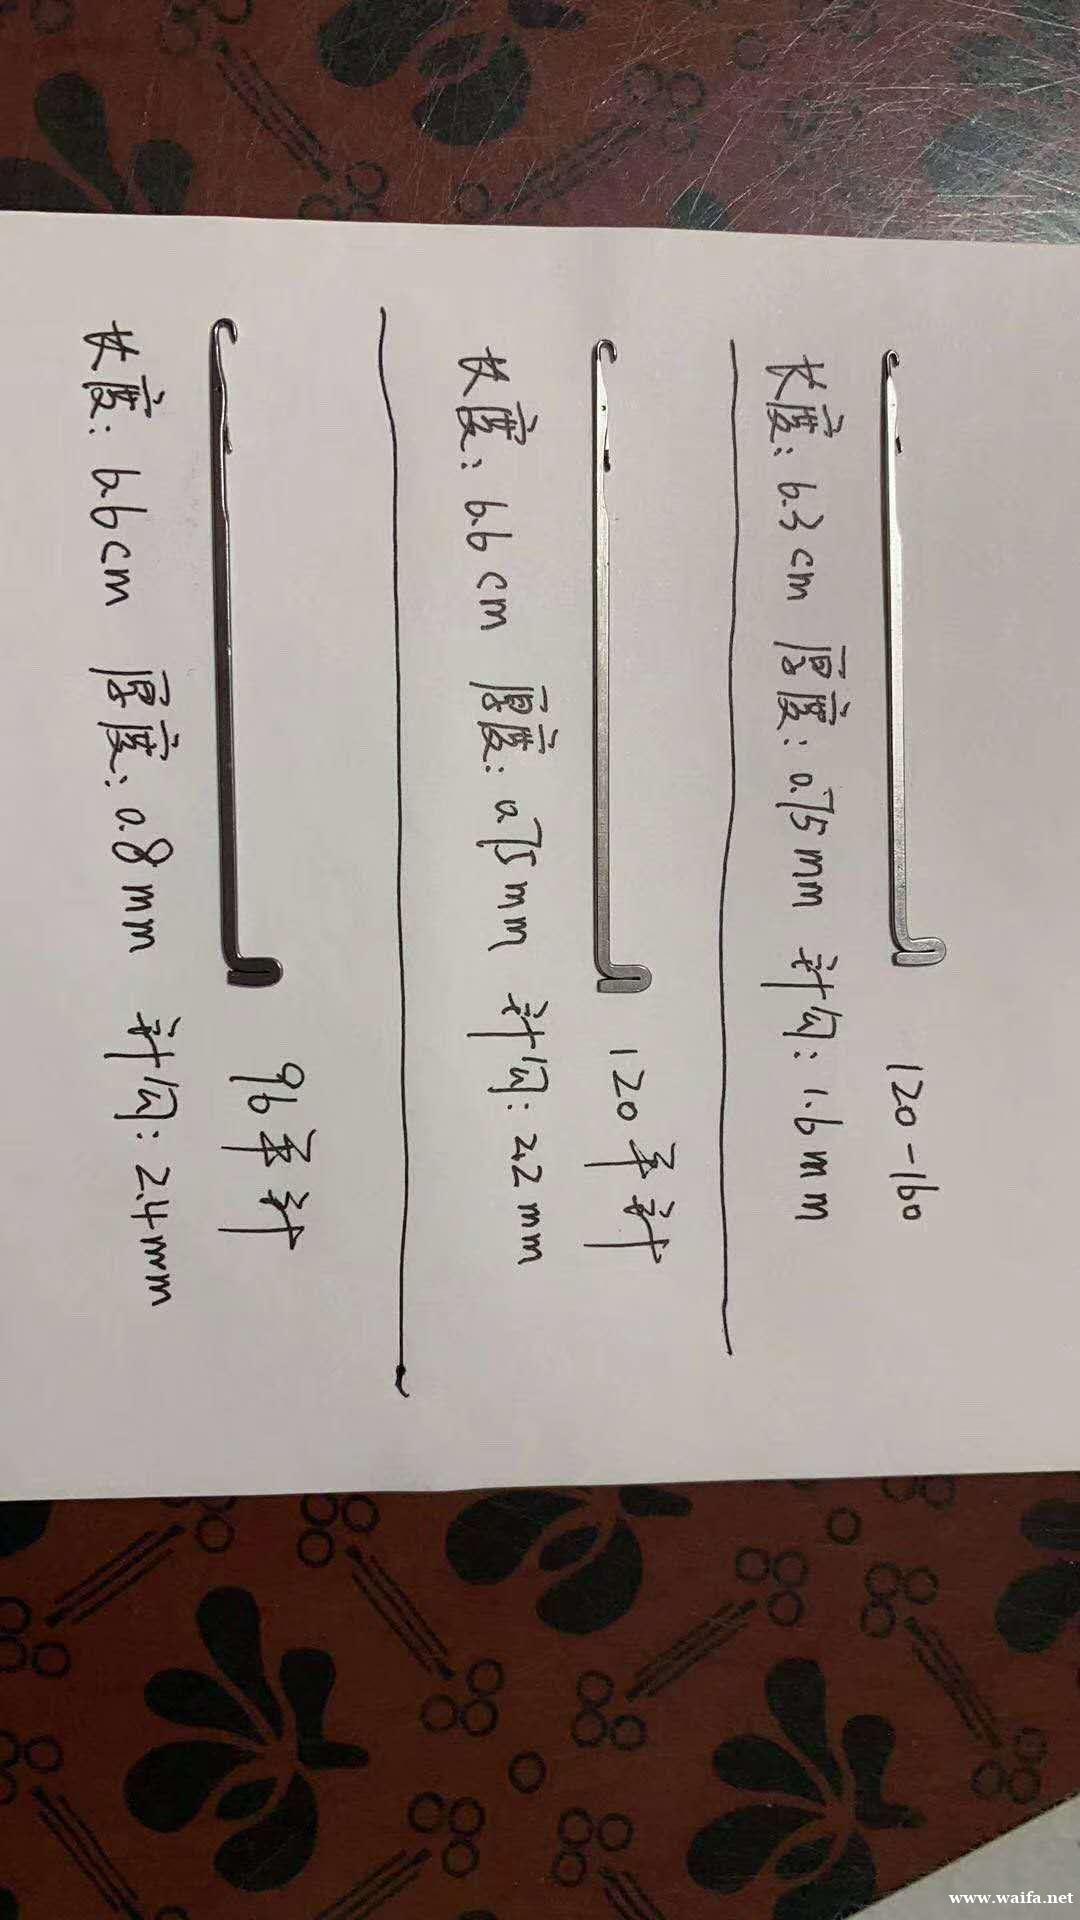 120-160
长度: 6.3cm 厚度: 0.75mm 针勾: 1.6mm
120 针
长度: 6.6cm 厚度: 0.75mm 针勾: 2.2mm
96 针
长度: 6.6cm 厚度: 0.8mm 针勾: 2.4mm
www.waifa.net